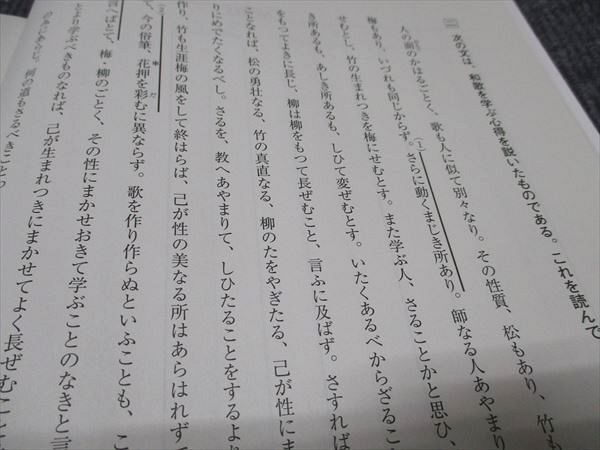 次の文は、和歌を学ぶ心得を説いたものである。これを読んで
人の面のかはるごとく、歌も人に似て別々なり。その性質、松もあり、竹も
梅もあり、いづれも同じからず。さらに動くまじき所あり。師なる人あやまり
せむとし、竹の生まれつきを梅にせむとす。また学ぶ人、さることかと思ひ、
き所あるも、あしき所あるも、しひて変ぜむとす。いたくあるべからざるこ
をもつてよきに長じ、柳は柳をもつて長ぜむこと、言ふに及ばず。さすれば
ことなれば、松の勇壮なる、竹の真直なる、柳のたをやぎたる、己が性にま
りにめでたくなるべし。さるを、教へあやまりて、しひたることをするより
作り、竹も生涯梅の風をして終はらば、己が性の美なる所はあらはれず
て、今の俗筆、花押を彩むに異ならず。歌を作り作らぬといふことも、こ
言へばとて、梅・柳のごとく、その性にまかせおきて学ぶことのなきと言
とより学ぶべきものなれば、己が生まれつきにまかせてよく長ぜむこと